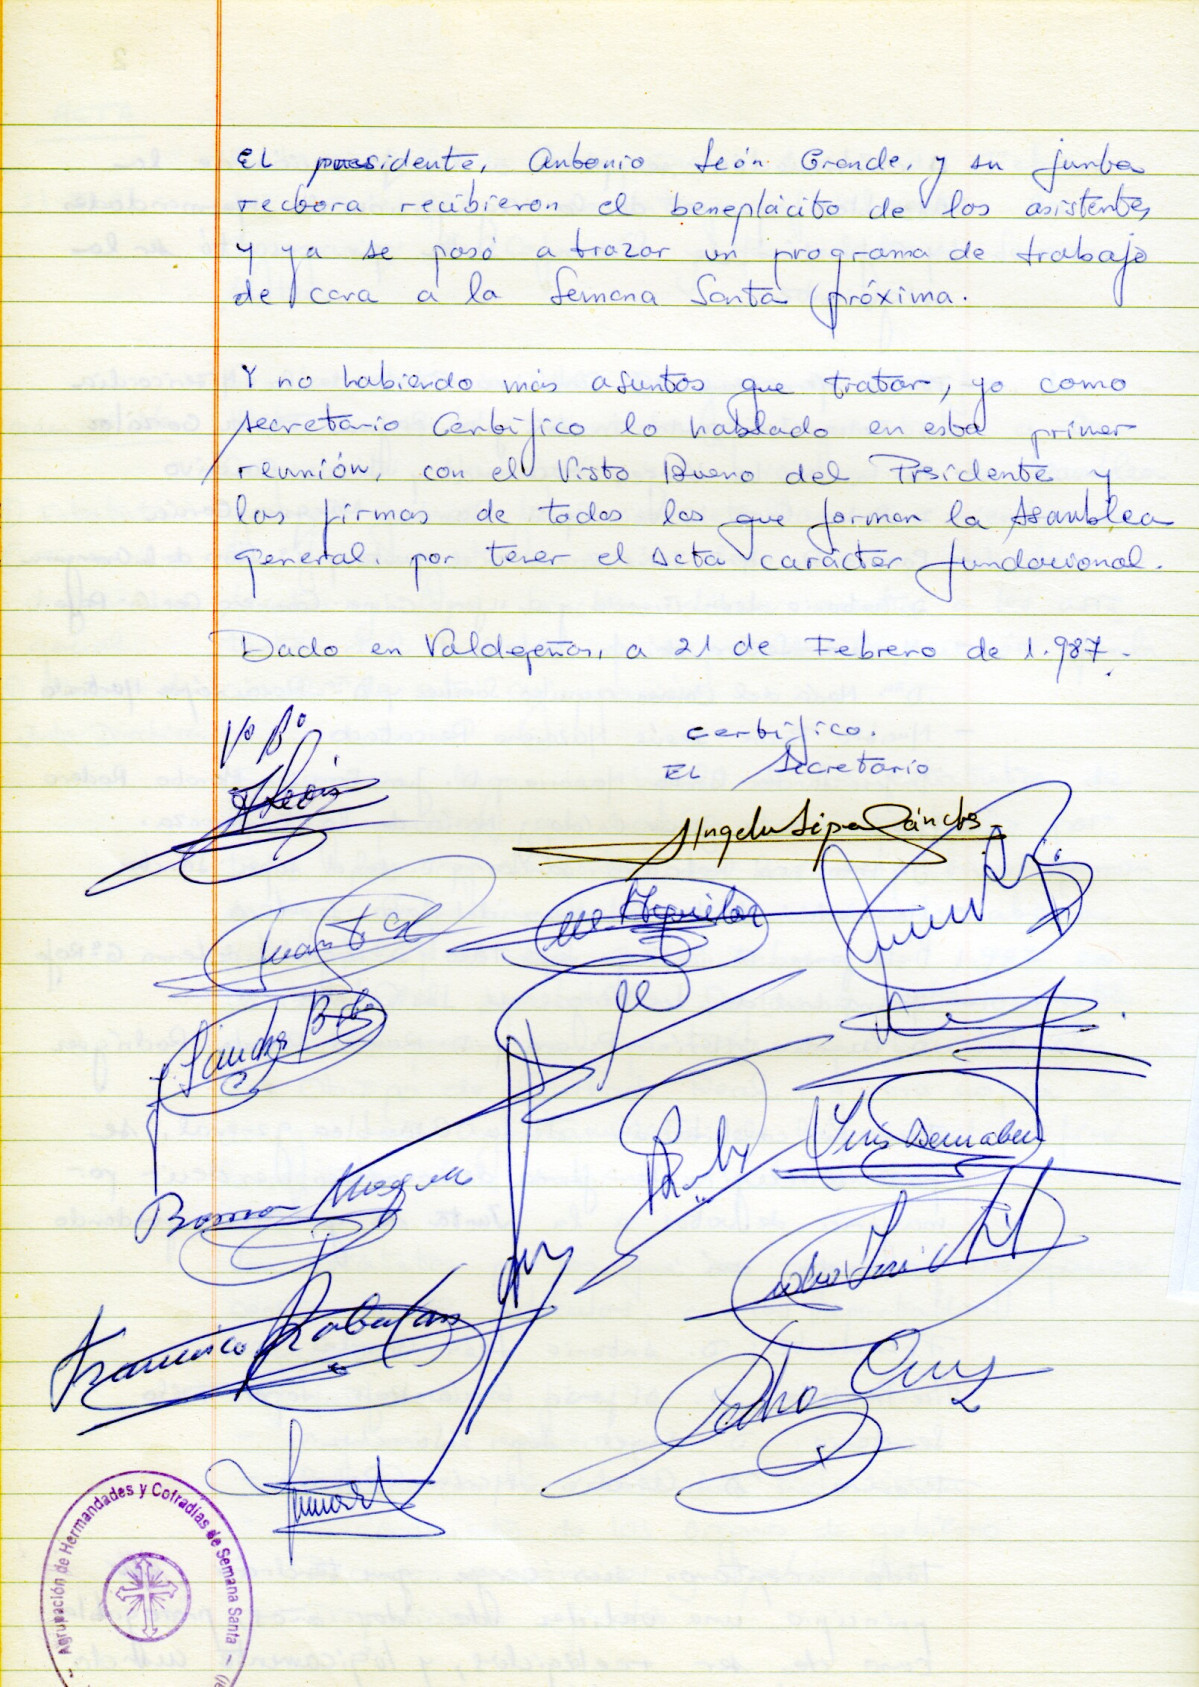 EL presidente, Antonio León Grande, y su junta
rectora recibieron el beneplácito de los asistentes
y ya se pasó a trazar un programa de trabajo
de cara a la Semana Santa próxima.
Y no habiendo más asuntos que tratar, yo como
secretario Certifico lo hablado en esta primer
reunión, con el Visto Bueno del Prsidente y
las firmas de todos los que forman la Asamblea
general, por tener el acta carácter fundacional.
Dado en Valdepeñas, a 21 de Febrero de 1.987.
Vº Bº
certifico.
EL Secretario
A León
Angel López Sánchez
M. Aguilar
Sánchez
Luis
Ramón
Francisco
Pedro Cruz
Agrupación de Hermandades y Cofradías de Semana Santa